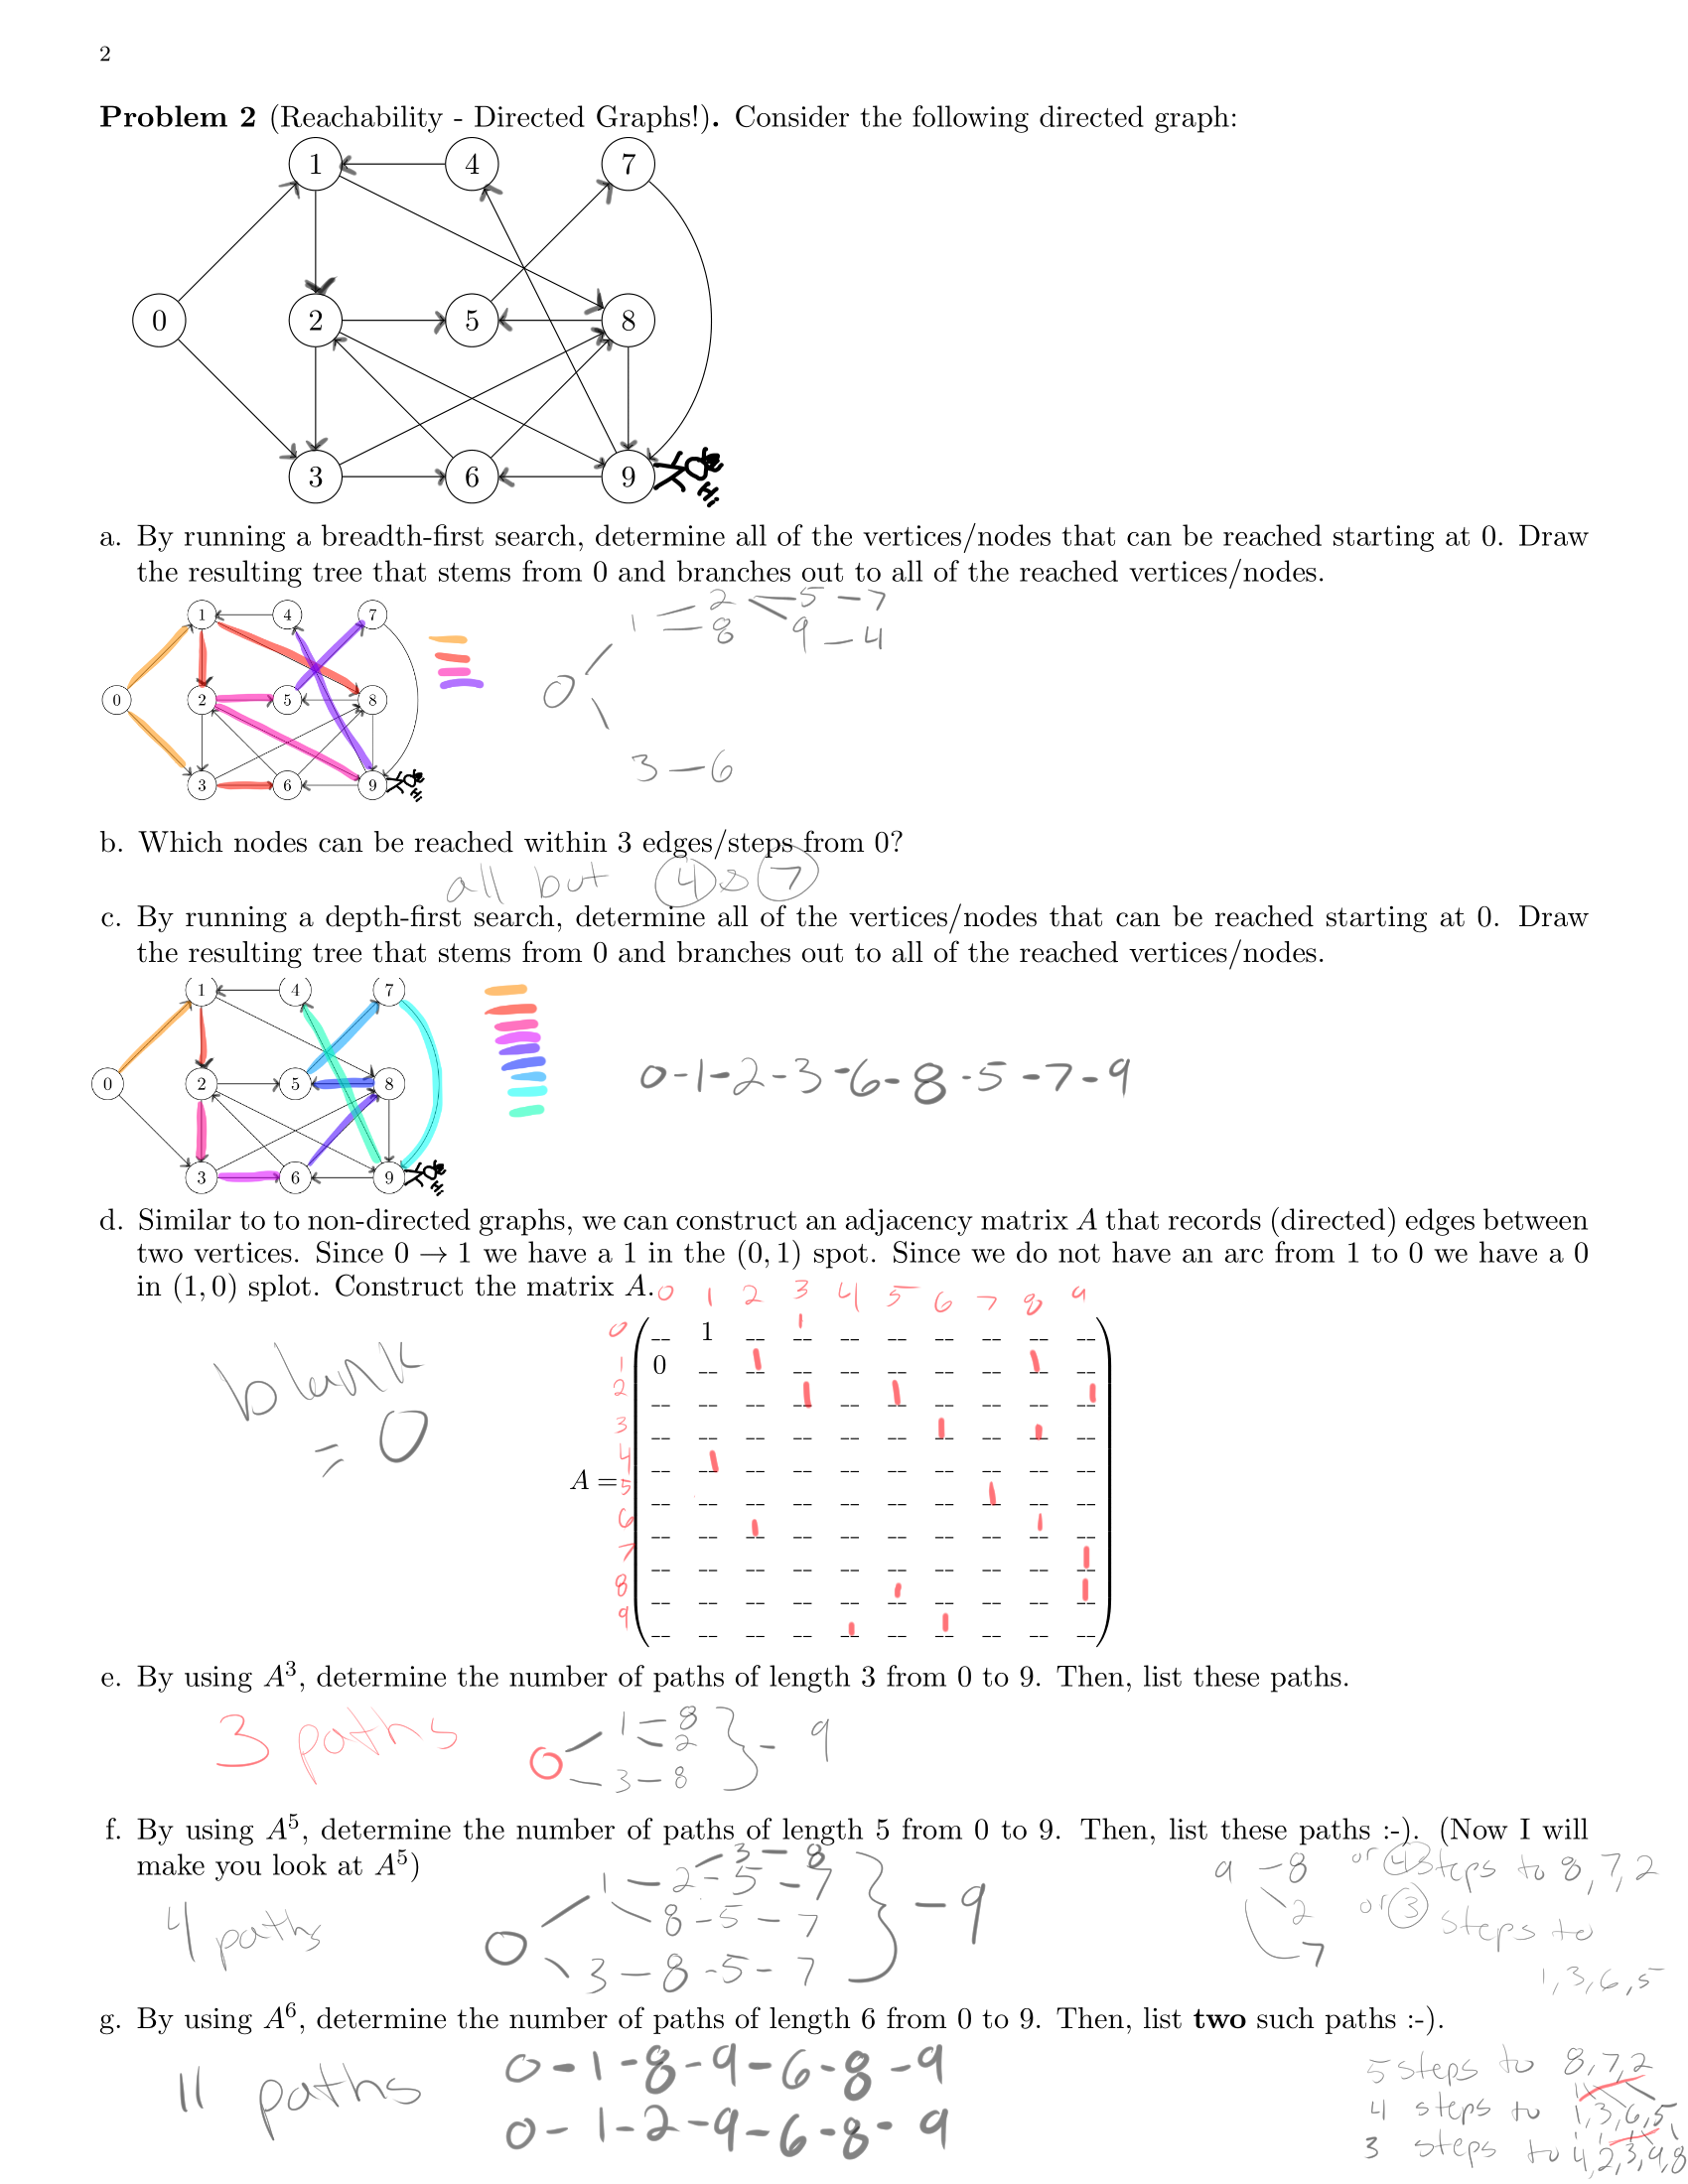 2
Problem 2 (Reachability - Directed Graphs!). Consider the following directed graph:
1 4 7
0 2 5 8
3 6 9
Hi
a. By running a breadth-first search, determine all of the vertices/nodes that can be reached starting at 0. Draw
the resulting tree that stems from 0 and branches out to all of the reached vertices/nodes.
1 4 7
0 2 5 8
3 6 9
Hi
1 = 2 - 5 - 7
8 9 - 4
0
3 - 6
b. Which nodes can be reached within 3 edges/steps from 0?
all but 4 & 7
c. By running a depth-first search, determine all of the vertices/nodes that can be reached starting at 0. Draw
the resulting tree that stems from 0 and branches out to all of the reached vertices/nodes.
1 4 7
0 2 5 8
3 6 9
Hi
0-1-2-3-6-8-5-7-9
d. Similar to to non-directed graphs, we can construct an adjacency matrix A that records (directed) edges between
two vertices. Since 0 → 1 we have a 1 in the (0, 1) spot. Since we do not have an arc from 1 to 0 we have a 0
in (1, 0) splot. Construct the matrix A.
0 1 2 3 4 5 6 7 8 9
0 __ 1 __ 1 __ __ __ __ __ __
1 0 __ 1 __ __ __ __ __ 1 __
2 __ __ __ 1 __ 1 __ __ __ 1
3 __ __ __ __ __ __ 1 __ 1 __
4 __ 1 __ __ __ __ __ __ __ __
A =
5 __ __ __ __ __ __ __ 1 __ __
6 __ __ 1 __ __ __ __ __ 1 __
7 __ __ __ __ __ __ __ __ __ 1
8 __ __ __ __ __ 1 __ __ __ 1
9 __ __ __ __ 1 __ 1 __ __ __
blank
= 0
e. By using A³, determine the number of paths of length 3 from 0 to 9. Then, list these paths.
3 paths
0 1 - 8
2 } - 9
3 - 8
f. By using A⁵, determine the number of paths of length 5 from 0 to 9. Then, list these paths :-). (Now I will
make you look at A⁵)
4 paths
3 - 8
0 1 - 2 - 5 - 7
8 - 5 - 7 } - 9
3 - 8 - 5 - 7
9 - 8 or 4 steps to 8, 7, 2
2 or 3 steps to
7
1, 3, 6, 5
g. By using A⁶, determine the number of paths of length 6 from 0 to 9. Then, list two such paths :-).
11 paths
0-1-8-9-6-8-9
0-1-2-9-6-8-9
5 steps to 8, 7, 2
4 steps to 1, 3, 6, 5
3 steps to 4, 2, 3, 9, 8